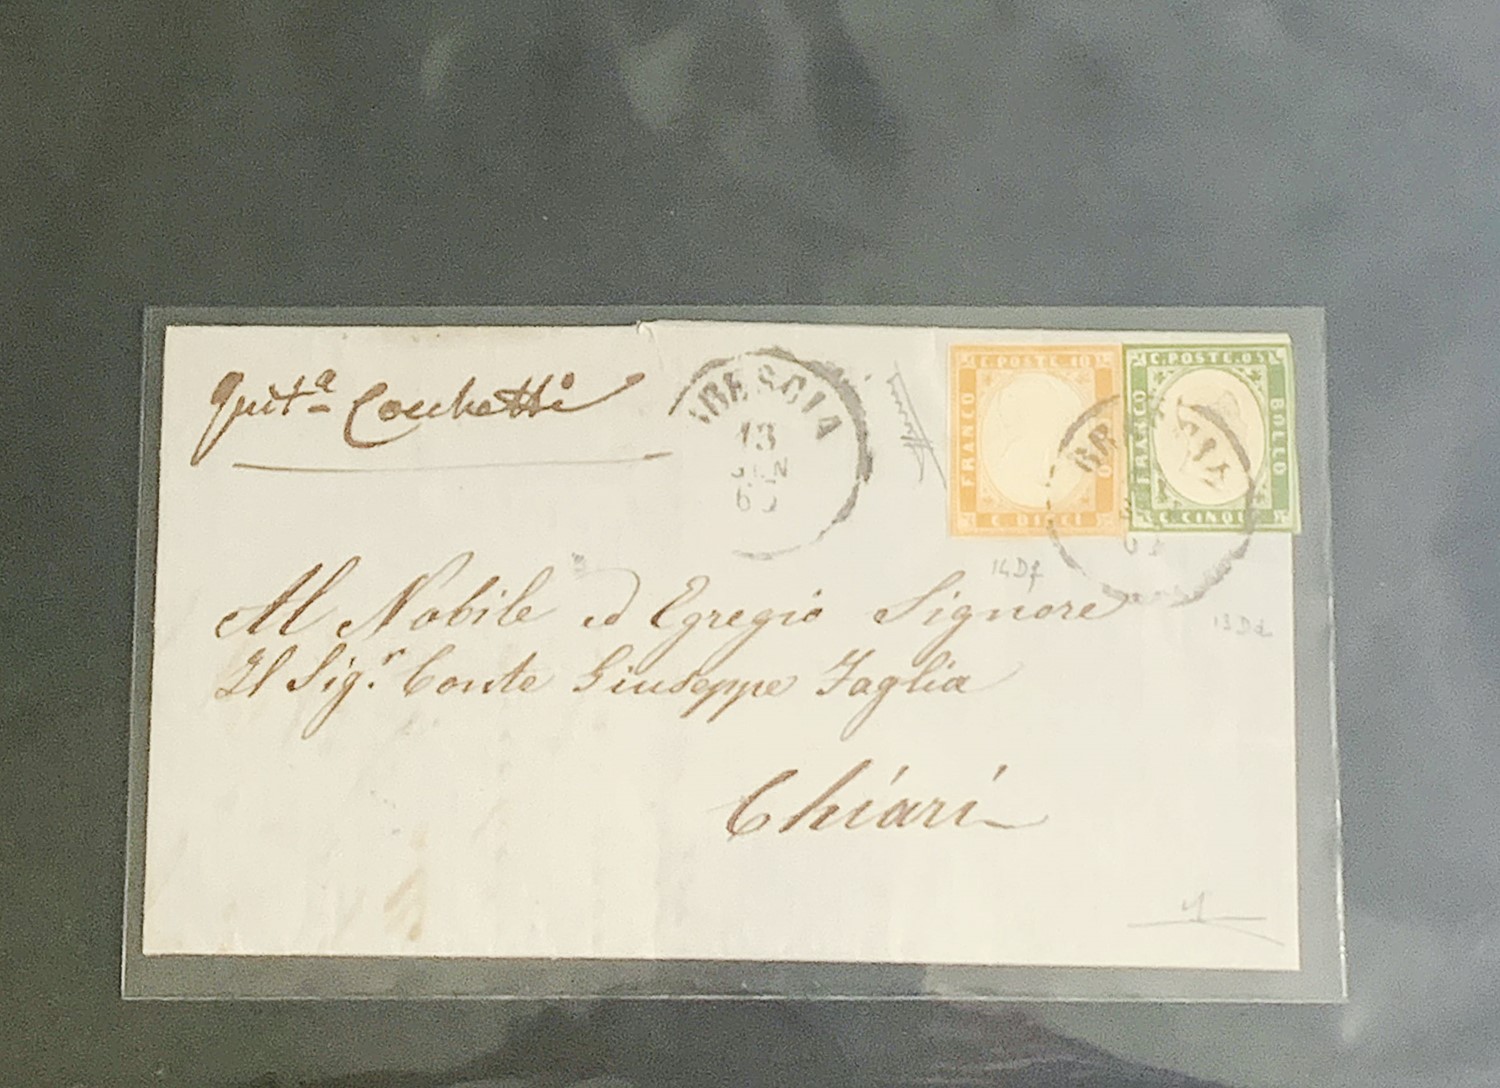 Quit.ª Cocchetti
BRESCIA
13
GEN
C. POSTE. 10
FRANCO
C. DIECI
C. POSTE. 05
FRANCO
BOLLO
C. CINQUE
BRESCIA
14Df
13Dd
Al Nobile ed Egregio Signore
Il Sig.r Conte Giuseppe Faglia
Chiari